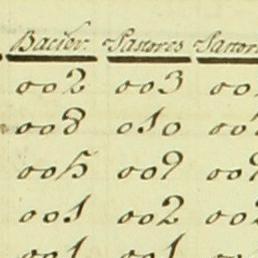 Bacier. Pastores Pastor
002 003 00
008 010 00
005 009 009
001 002 002
001 001